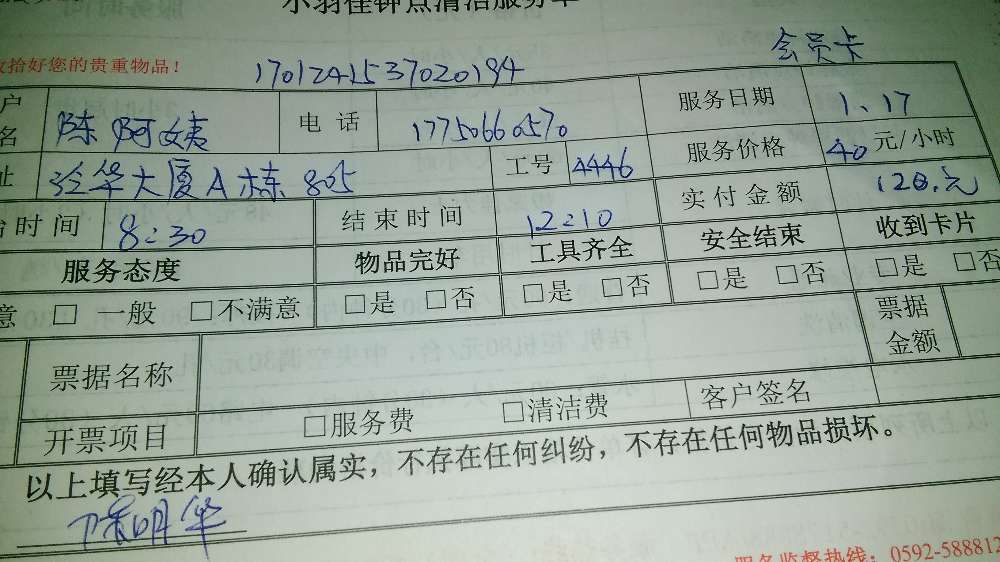 小羽佳钟点清洁服务单
收拾好您的贵重物品！ 1701241537020194 会员卡
户名 陈阿姨 电话 17750660570 服务日期 1、17
址 泠华大厦A栋805 工号 4446 服务价格 40元/小时
始时间 8:30 结束时间 12:10 实付金额 128.元
服务态度 物品完好 工具齐全 安全结束 收到卡片
意 □ 一般 □不满意 □是 □否 □是 □否 □是 □否 □是 □否
票据名称 票据金额
开票项目 □服务费 □清洁费 客户签名
以上填写经本人确认属实，不存在任何纠纷，不存在任何物品损坏。
陈明华
服务监督热线：0592-588812